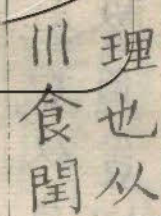 理也从
川食閏